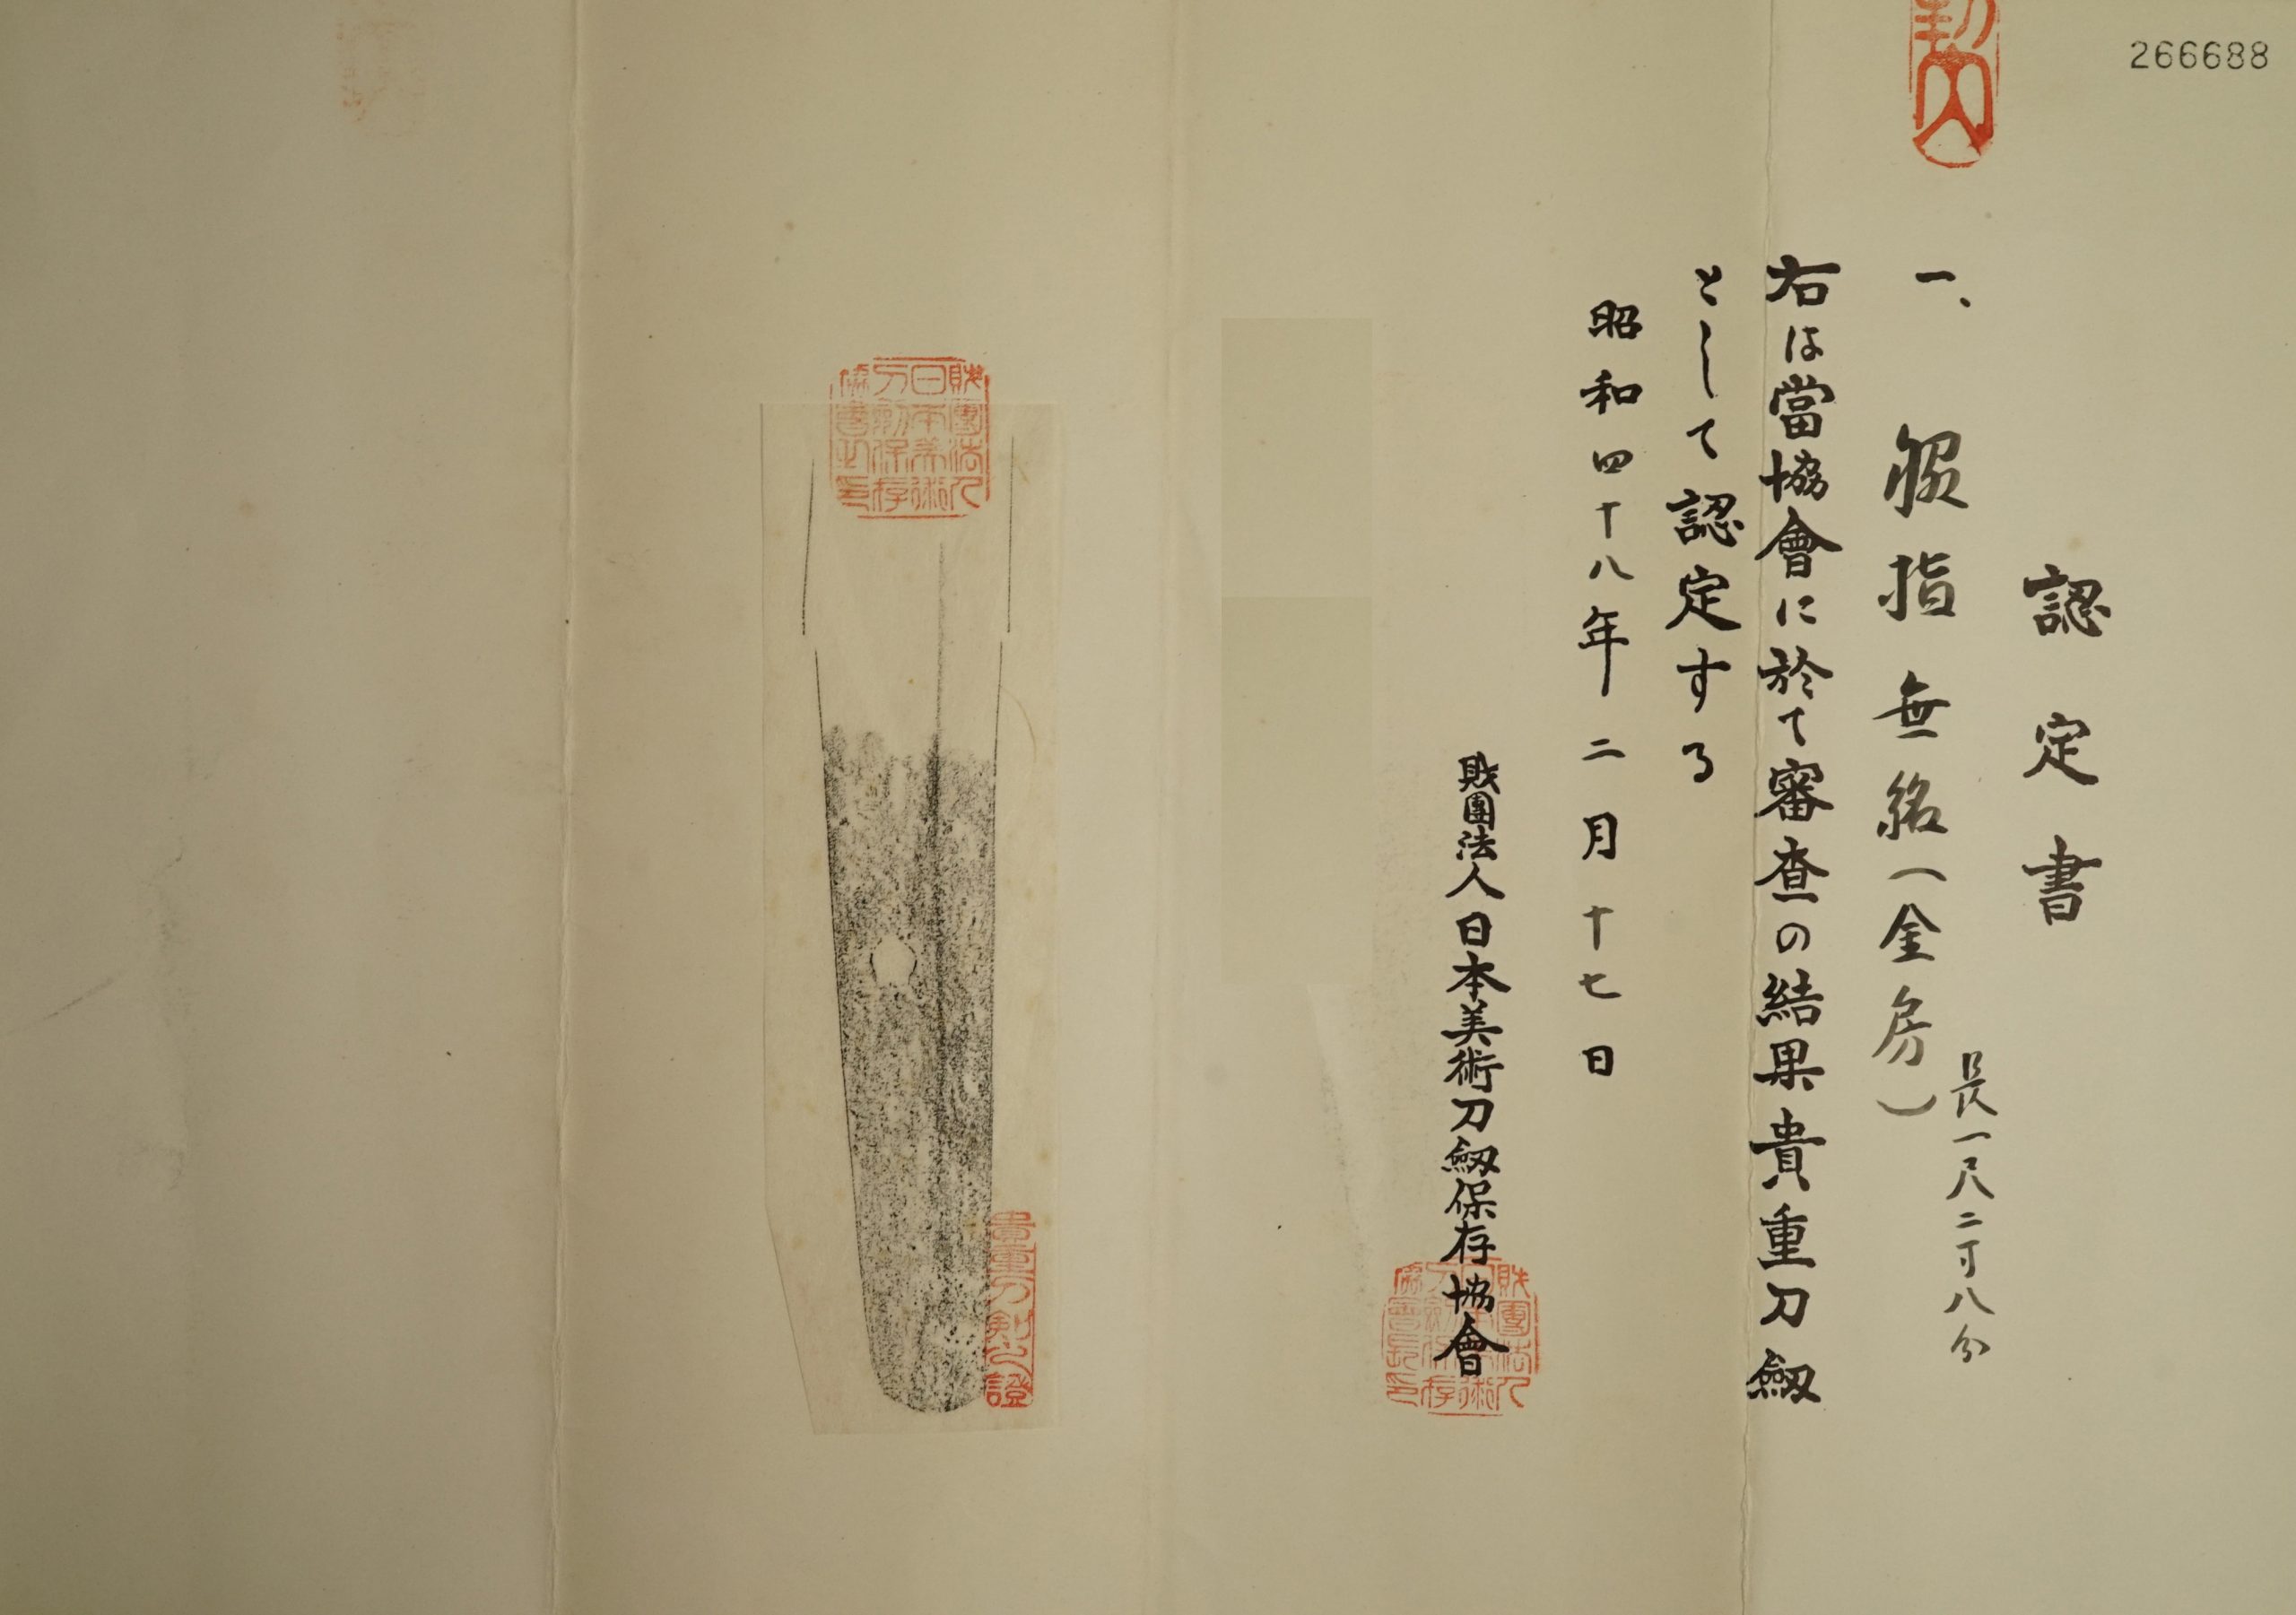 266688
認定書
一、脇指無銘(金房)
長一尺二寸八分
右は當協會に於て審査の結果貴重刀劔
として認定する
昭和四十八年二月十七日
財團法人日本美術刀劔保存協會
財團法人
日本美術
刀劍保存
協會長印
財團法人
日本美術
刀劍保存
協會之印
貴重刀剣之證